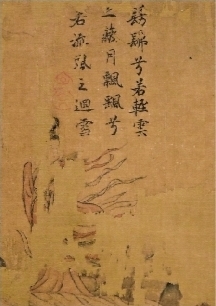 髣髴兮若輕雲
之蔽月飄飄兮
若流風之迴雪